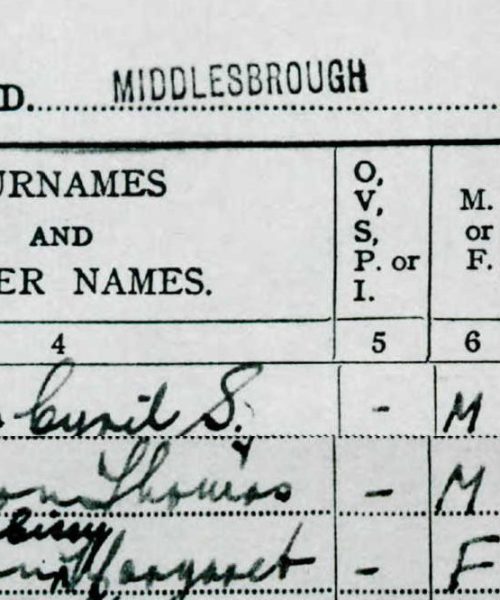 D. MIDDLESBROUGH
URNAMES
AND
ER NAMES.
O,
V,
S,
P. or
I.
M.
or
F.
4 5 6
Cyril S. - M
on Thomas - M
Margaret - F